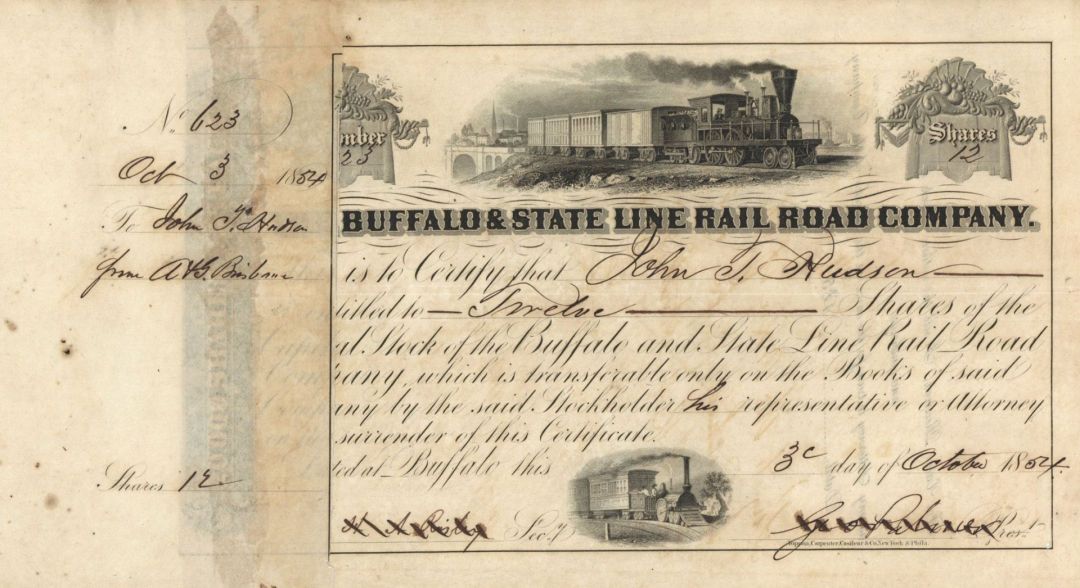 No 623
Oct 3 1854
To John T. Hudson
from A & G Brisbane
Shares 12
mber
23
Shares
12
BUFFALO & STATE LINE RAIL ROAD COMPANY.
is to Certify that John T. Hudson
titled to Twelve Shares of the
al Stock of the Buffalo and State Line Rail Road
pany, which is transferable only on the Books of said
any by the said Stockholder his representative or Attorney
surrender of this Certificate.
ted at Buffalo this 3d day of October 1854
Sec.y
Pres.t
Toppan, Carpenter, Casilear & Co. New York & Phila.